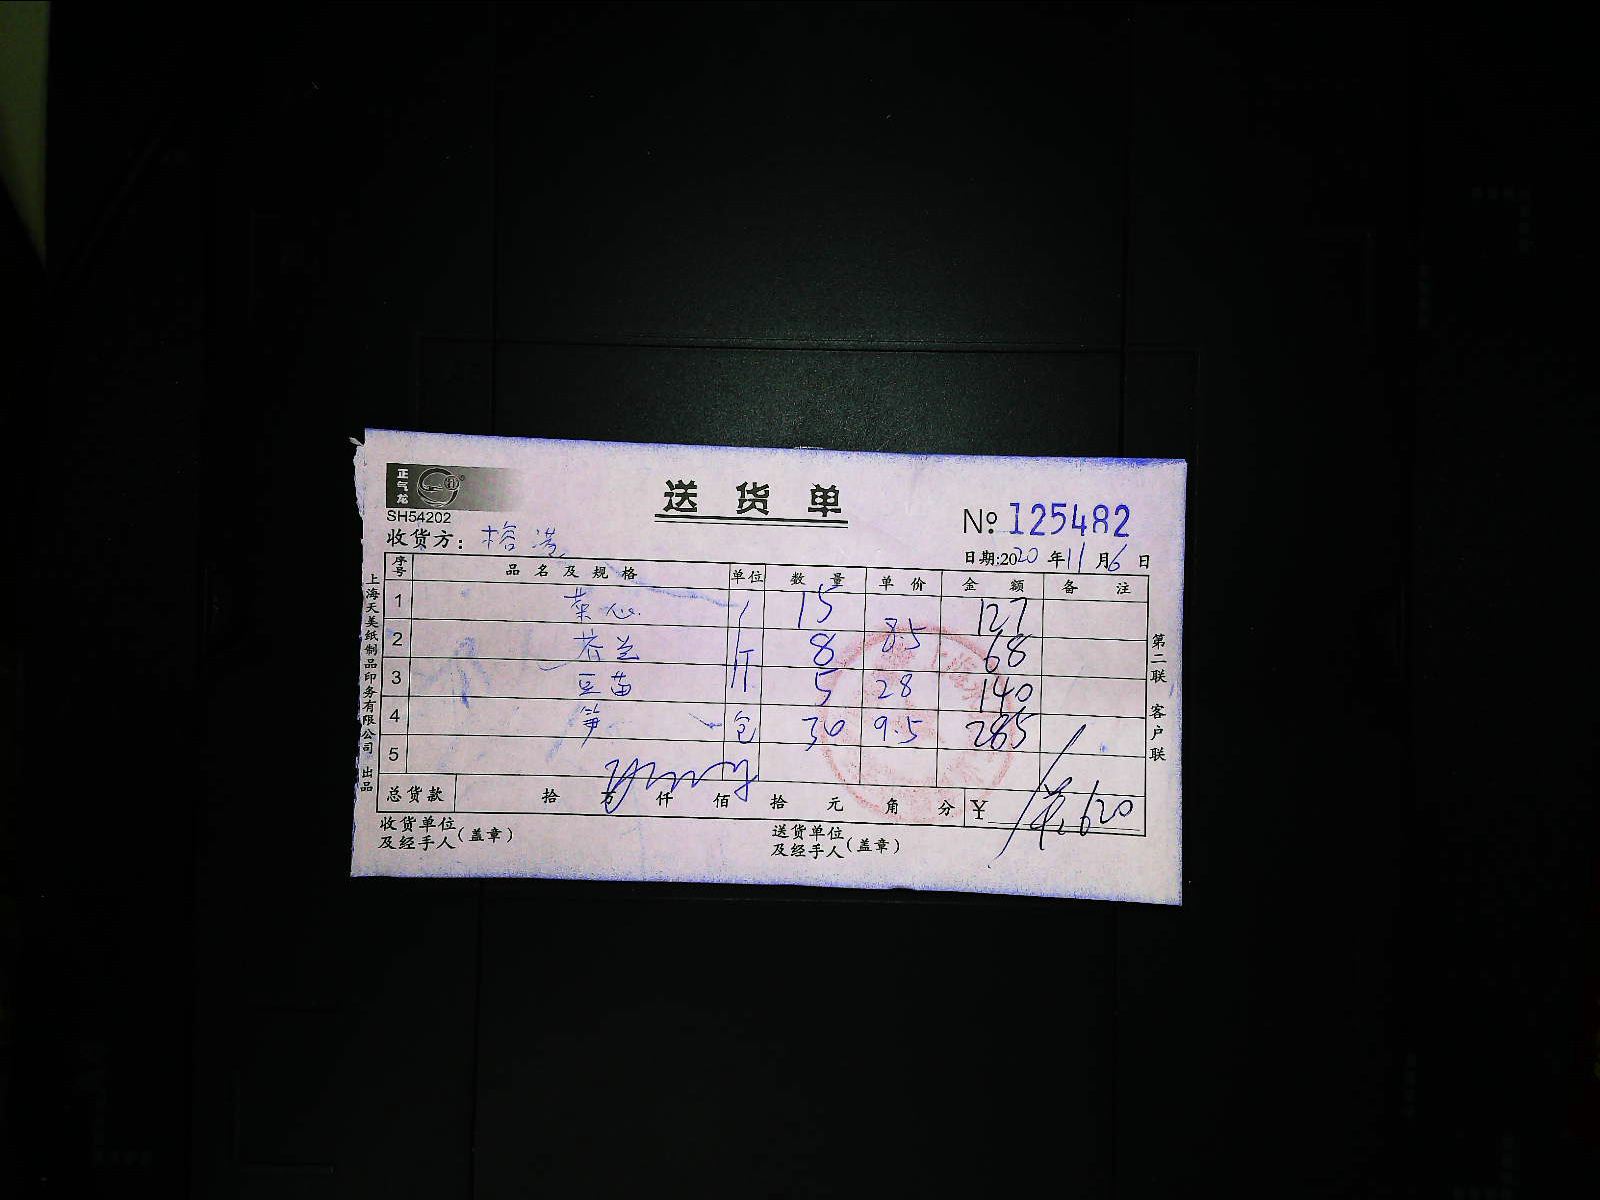 正气龙
SH54202
送货单
№ 125482
收货方:
日期:2020年11月6日
序号 品名及规格 单位 数量 单价 金额 备注
1 菜心 15 127
2 芥兰 斤 8 8.5 68
3 豆苗 5 28 140
4 笋 包 30 9.5 285
5
总货款 拾 万 仟 佰 拾 元 角 分 ¥ 620
收货单位及经手人(盖章)
送货单位及经手人(盖章)
上海天美纸制品印务有限公司 出品
第二联 客户联